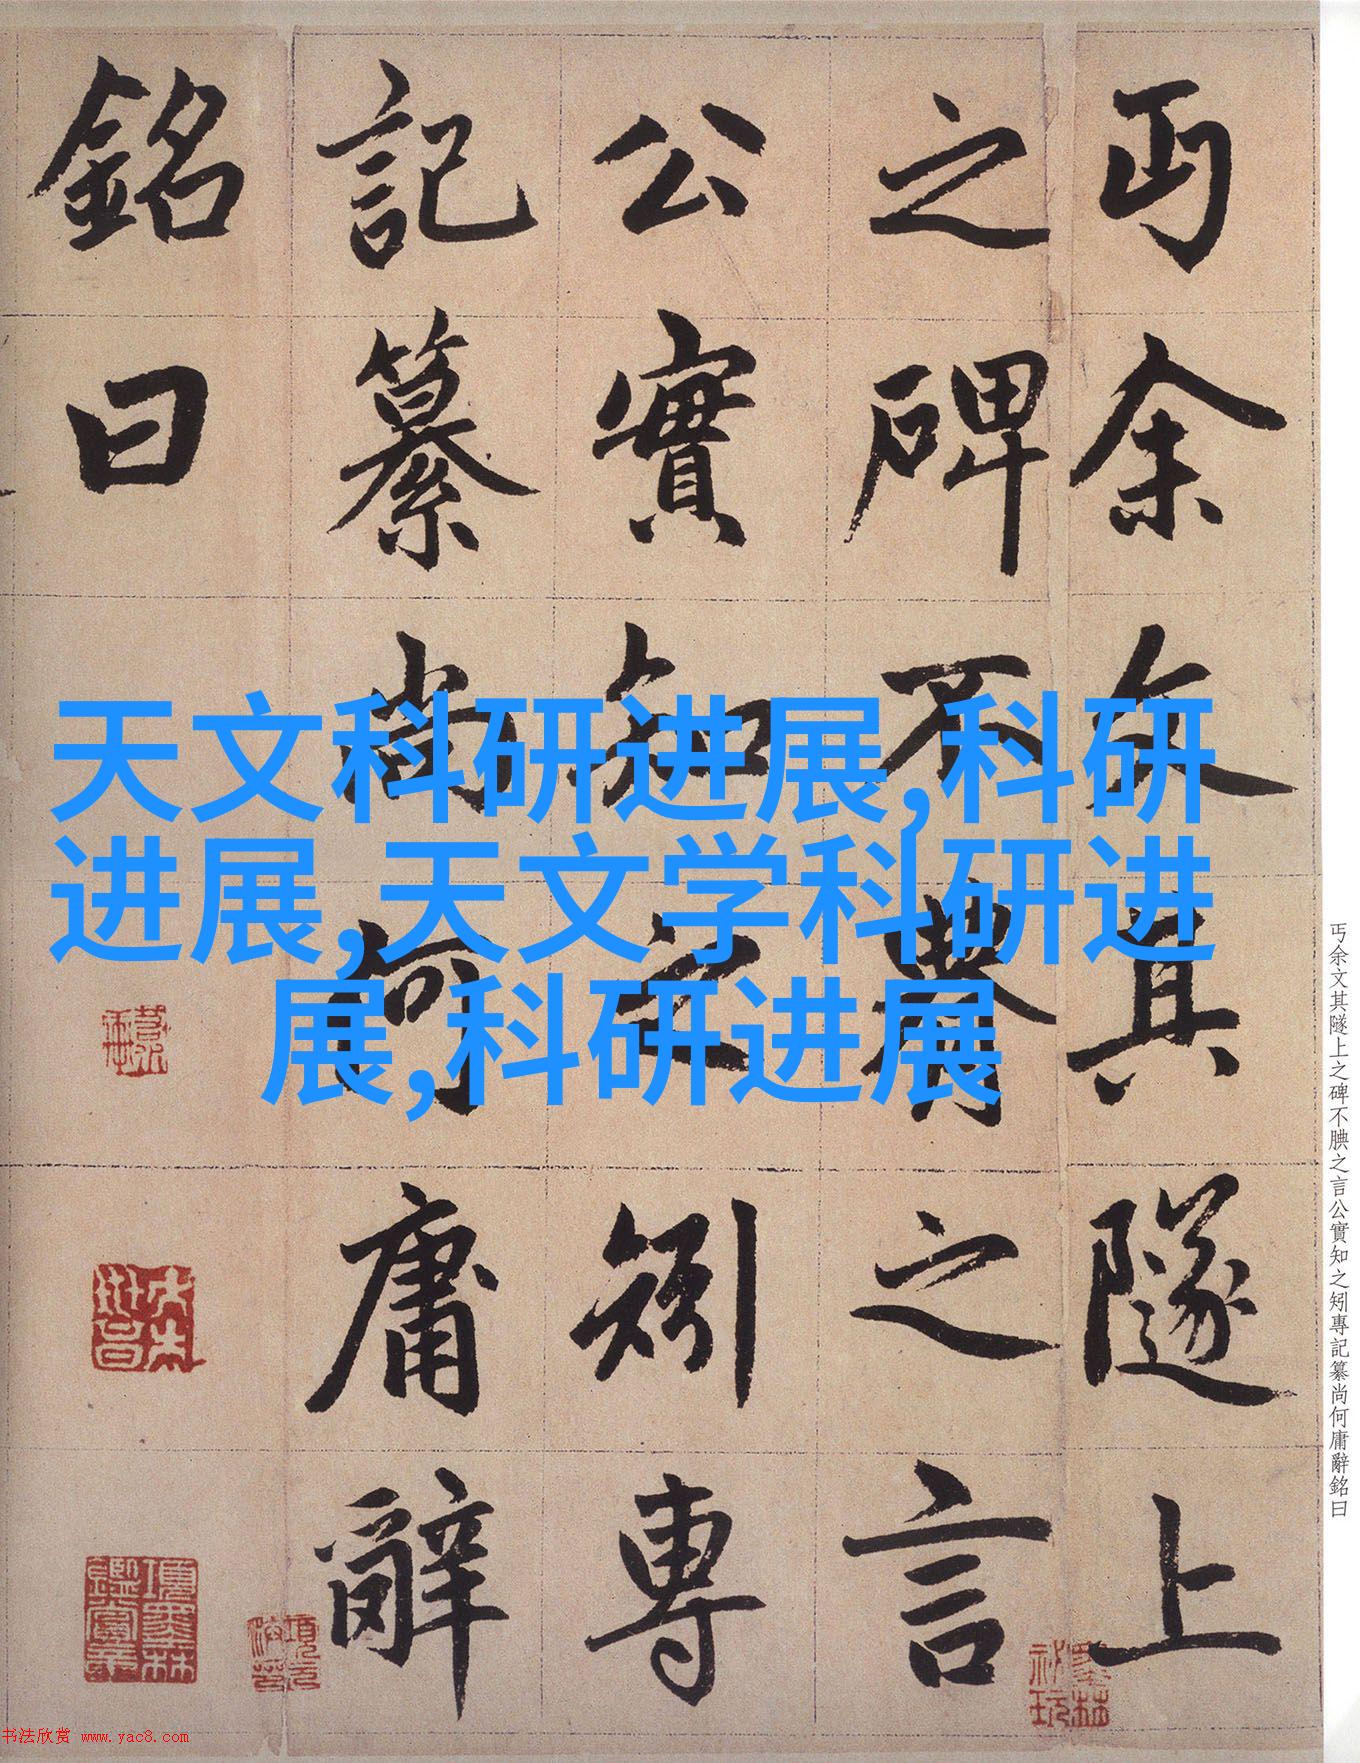 天文科研进展,科研
进展,天文学科研进
展,科研进展
丐余文其隧上
之碑不腆之言
公實知之矧專
記纂尚何庸辭
銘曰
丐余文其隧上之碑不腆之言公實知之矧專記纂尚何庸辭銘曰
項墨林鑑賞章
墨林祕玩
书法欣赏 www.yac8.com